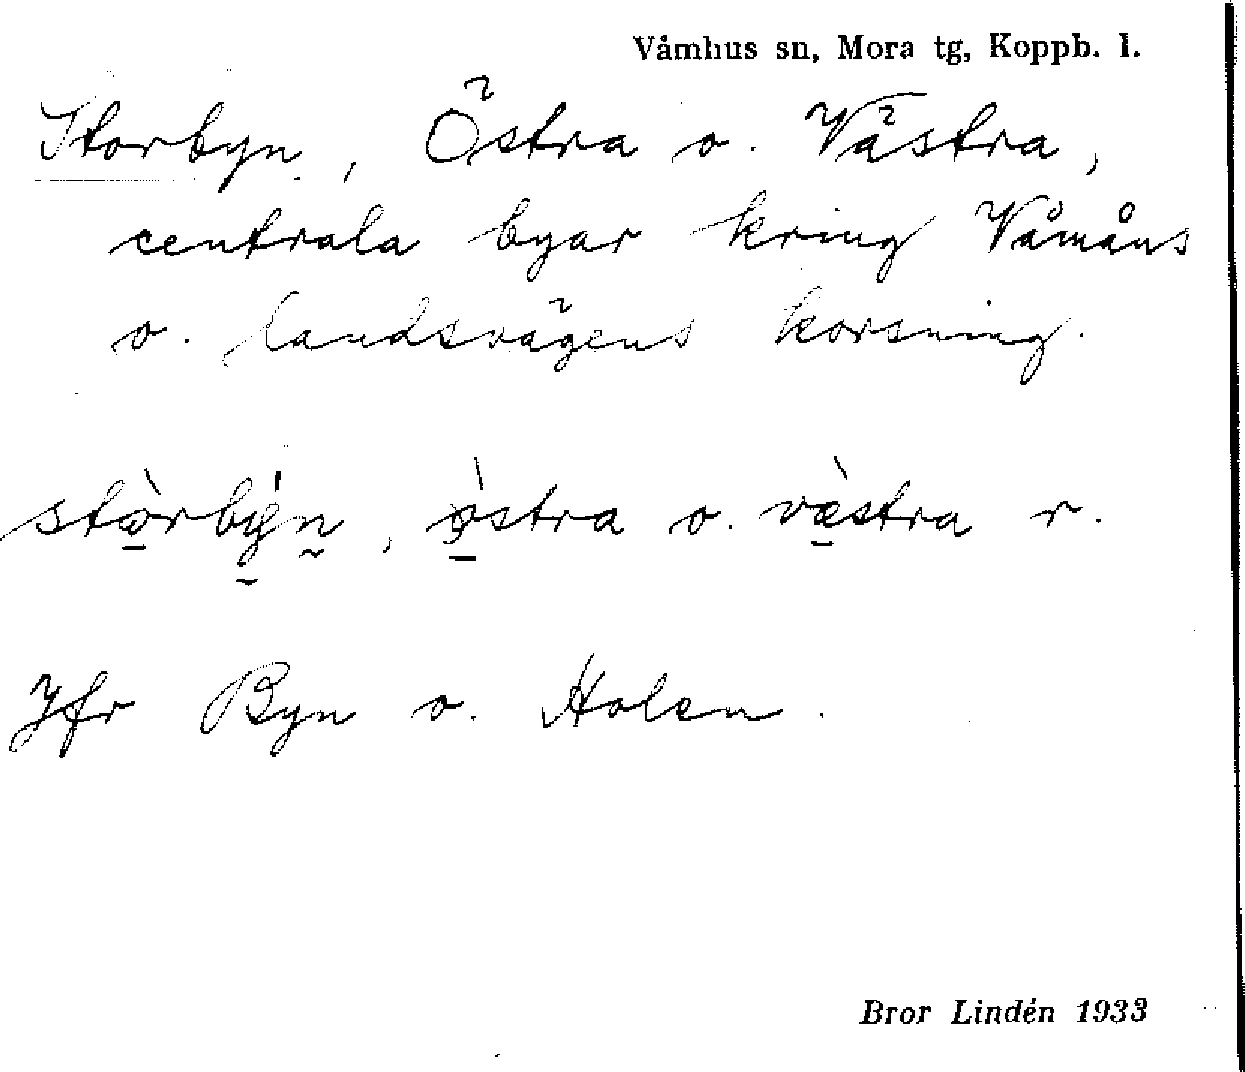 Våmhus sn, Mora tg, Koppb. l.
Storbyn, Östra o. Västra,
centrala byar kring Våmåns
o. landsvägens korsning.
stòrbýn, östra o. vàstra r.
Jfr Byn o. Holen.
Bror Lindén 1933